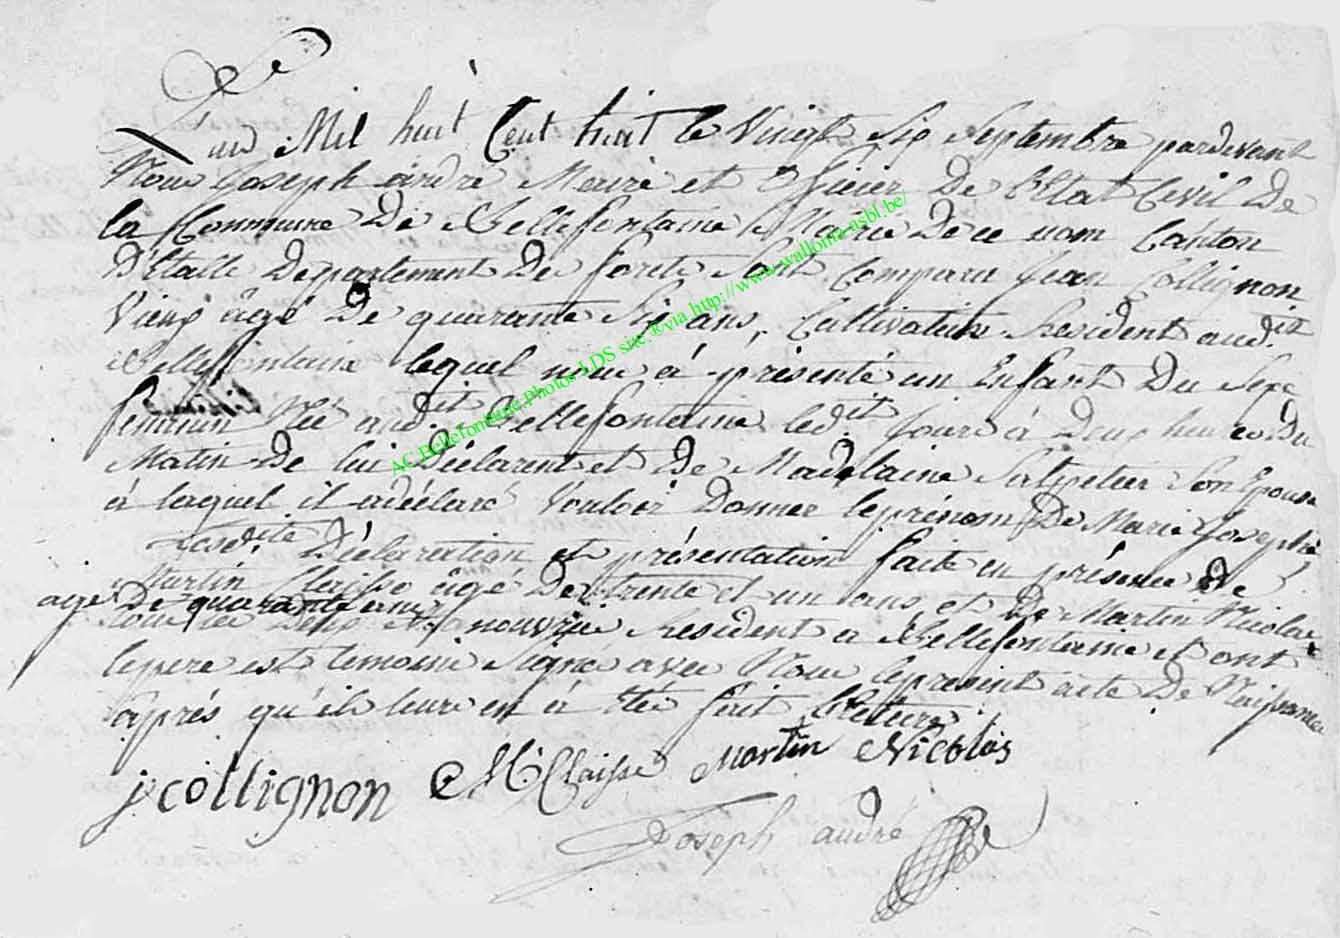 L'an Mil huit Cent huit le Vingt Six Septembre pardevant
Nous Joseph andré Maire et Officier De l'Etat Civil De
la Commune De Bellefontaine Mairie De ce nom Canton
D'Etalle Département De forets Sont Comparu Jean Collignon
Vieux âgé De quarante Six ans, Cultivateur Resident aud.it
Bellefontaine lequel nous à présenté un Enfant Du Sexe
féminin Née aud.it Bellefontaine led.it jour à Deux heures Du
Matin De lui Déclarent et De Madelaine Son Epouse
à laquel il a déclaré Vouloir Donner le prénom De Marie Josephe
Lesdite Déclaration et présentation faite en présence De
Martin Claisse âgé De trente et un ans et De Martin Nicolas
agé De quarante ans
Tous les Deux Resident a Bellefontaine et ont
le pere et temoins Signé avec Nous le present acte De Naissance
après qu'il leure en à étée fait Lecture
j collignon M Claisse Martin Nicolas
Joseph andré
AC Bellefontaine.Photos LDS site.®via http://www.wallonia-asbl.be/